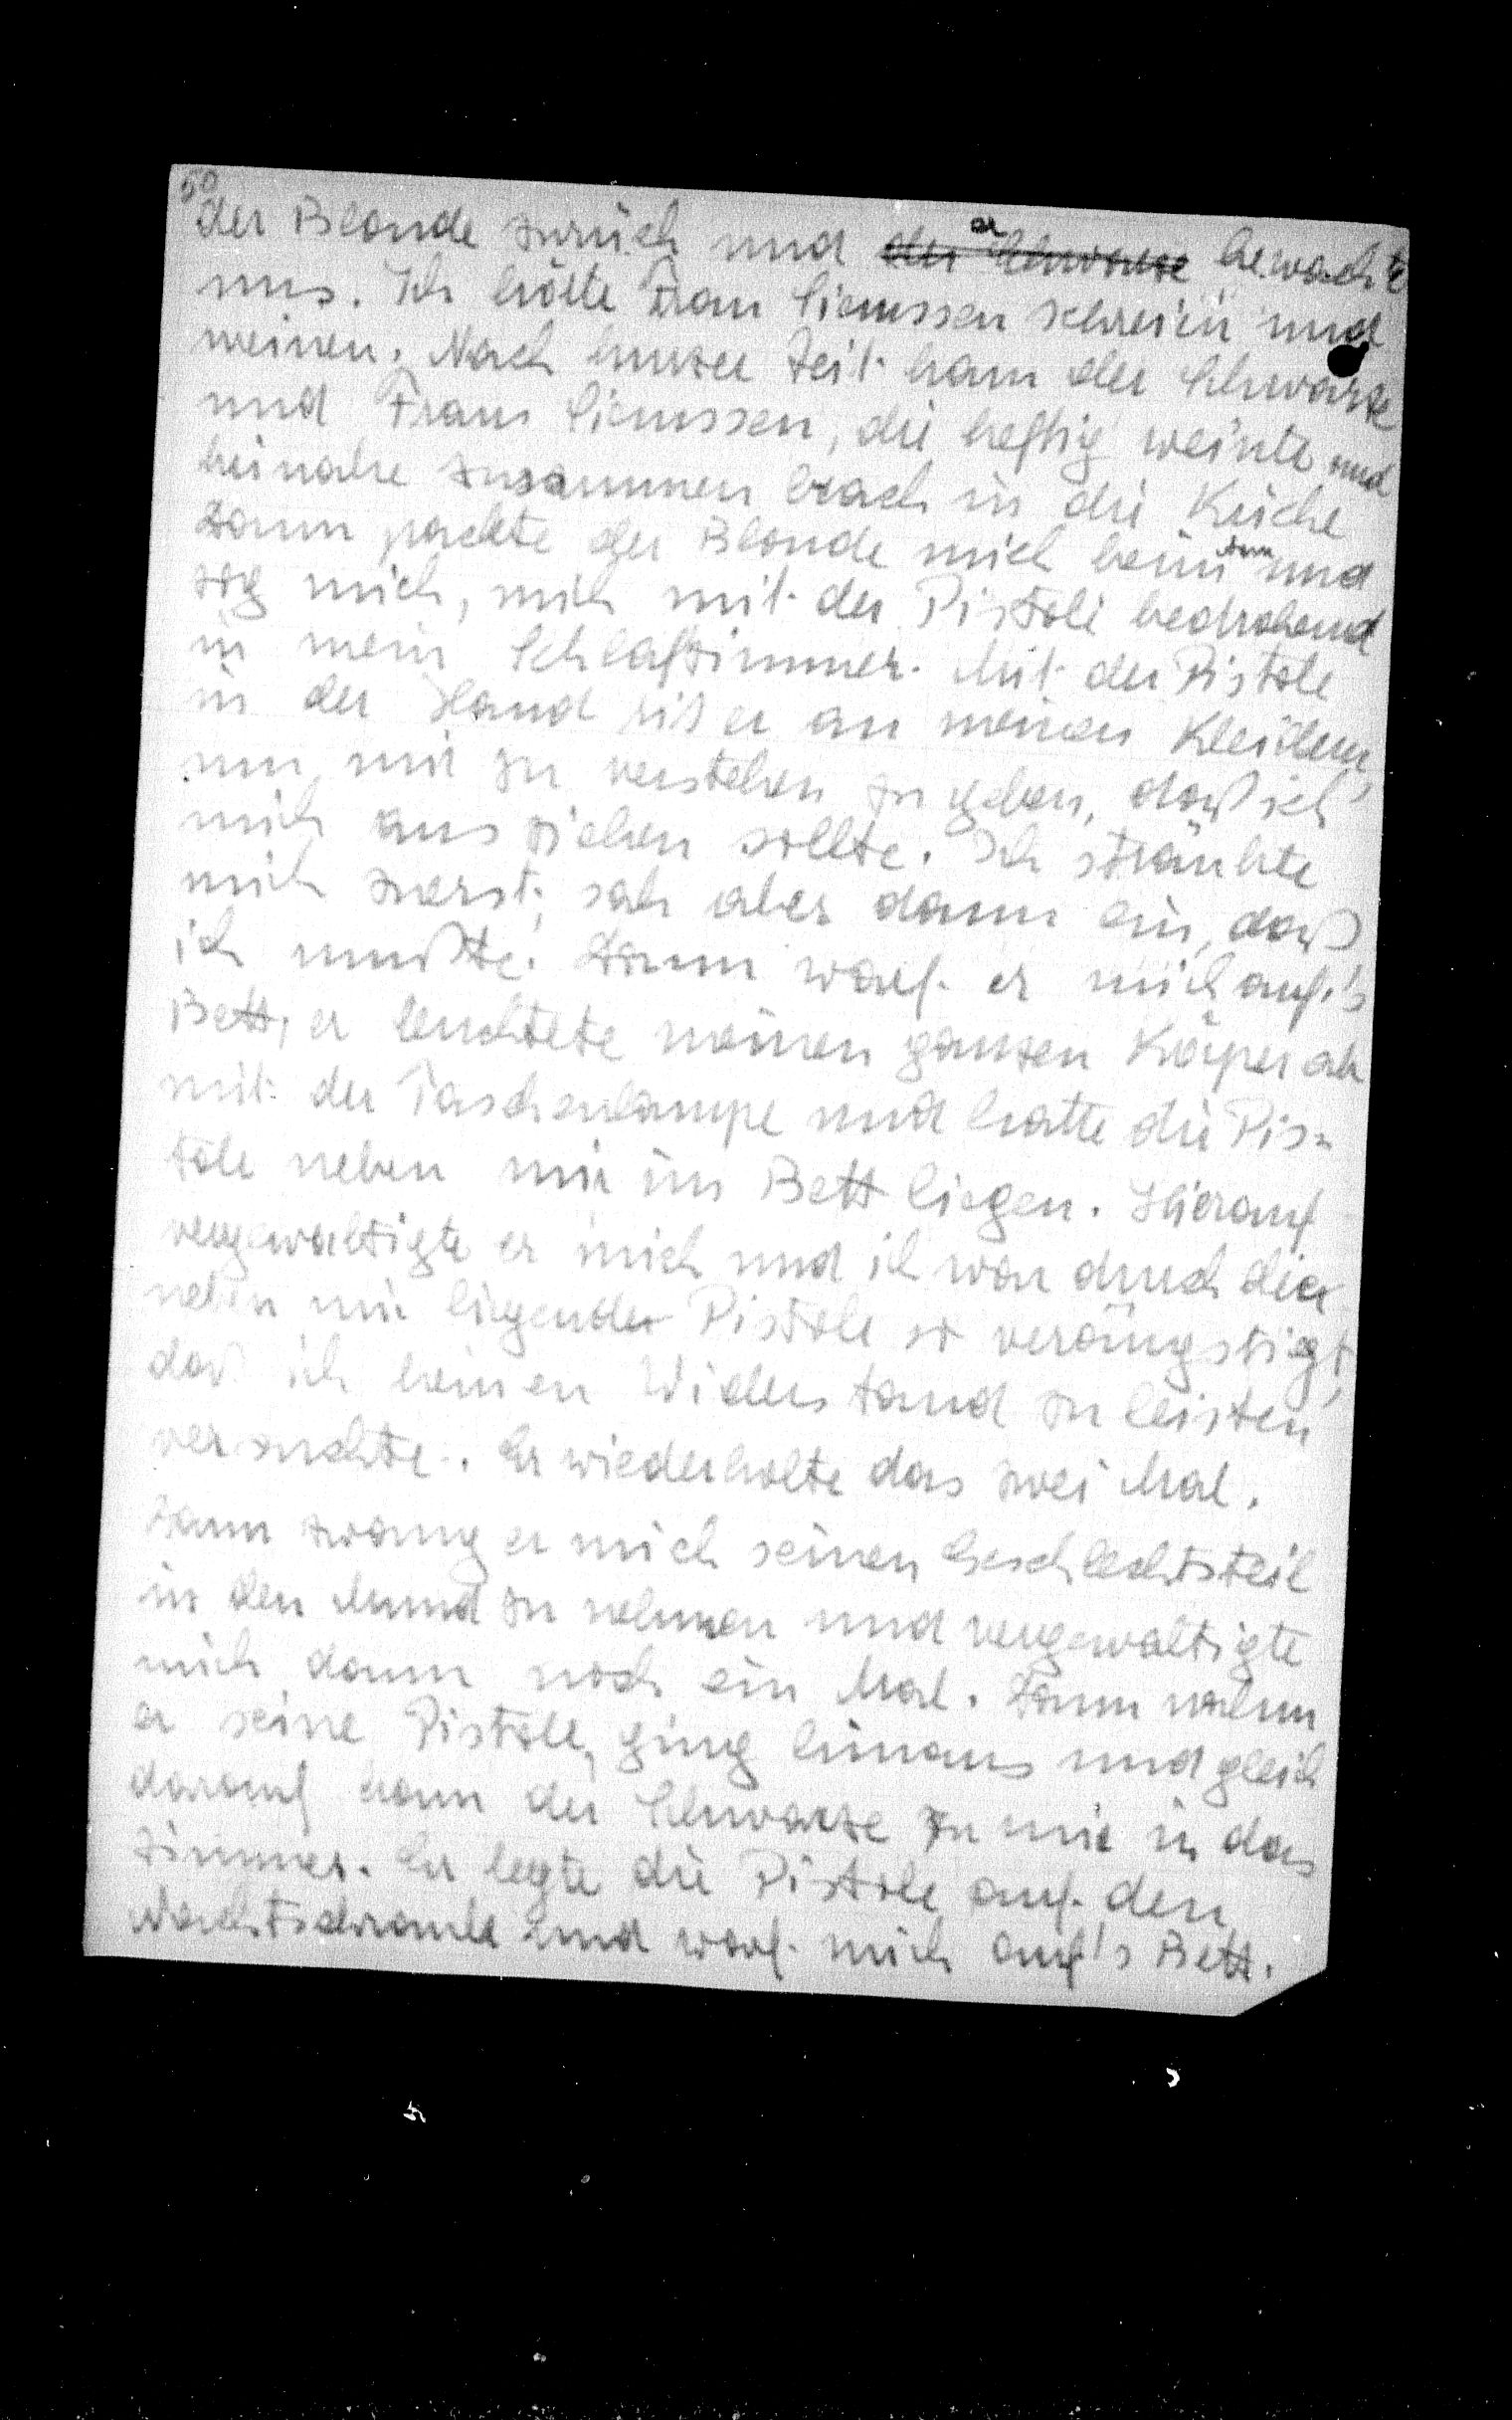 50
der Blonde zurück und ~~der Schwarze~~ er bewachte
uns. Ich hörte Frau Siemssen schreien und
weinen. Nach kurzer Zeit kam der Schwarze
und Frau Siemssen, die heftig weinte und
beinahe zusammen brach in die Küche
Dann packte der Blonde mich beim Arm und
zog mich, mich mit der Pistole bedrohend
in mein Schlafzimmer. Mit der Pistole
in der Hand riß er an meinen Kleidern,
um mir zu verstehen zu geben, daß ich
mich aus ziehen sollte. Ich sträubte
mich zuerst, sah aber dann ein, daß
ich mußte. Dann warf er mich auf's
Bett, er leuchtete meinen ganzen Körper ab
mit der Taschenlampe und hatte die Pis-
tole neben mir im Bett liegen. Hierauf
vergewaltigte er mich und ich war durch die
neben mir liegende Pistole so verängstigt,
daß ich keinen Widerstand zu leisten
versuchte. Er wiederholte das zwei Mal.
Dann zwang er mich seinen Geschlechtsteil
in den Mund zu nehmen und vergewaltigte
mich dann noch ein Mal. Dann nahm
er seine Pistole, ging hinaus und gleich
darauf kam der Schwarze zu mir in das
Zimmer. Er legte die Pistole auf den
Nachtschrank und warf mich auf's Bett.